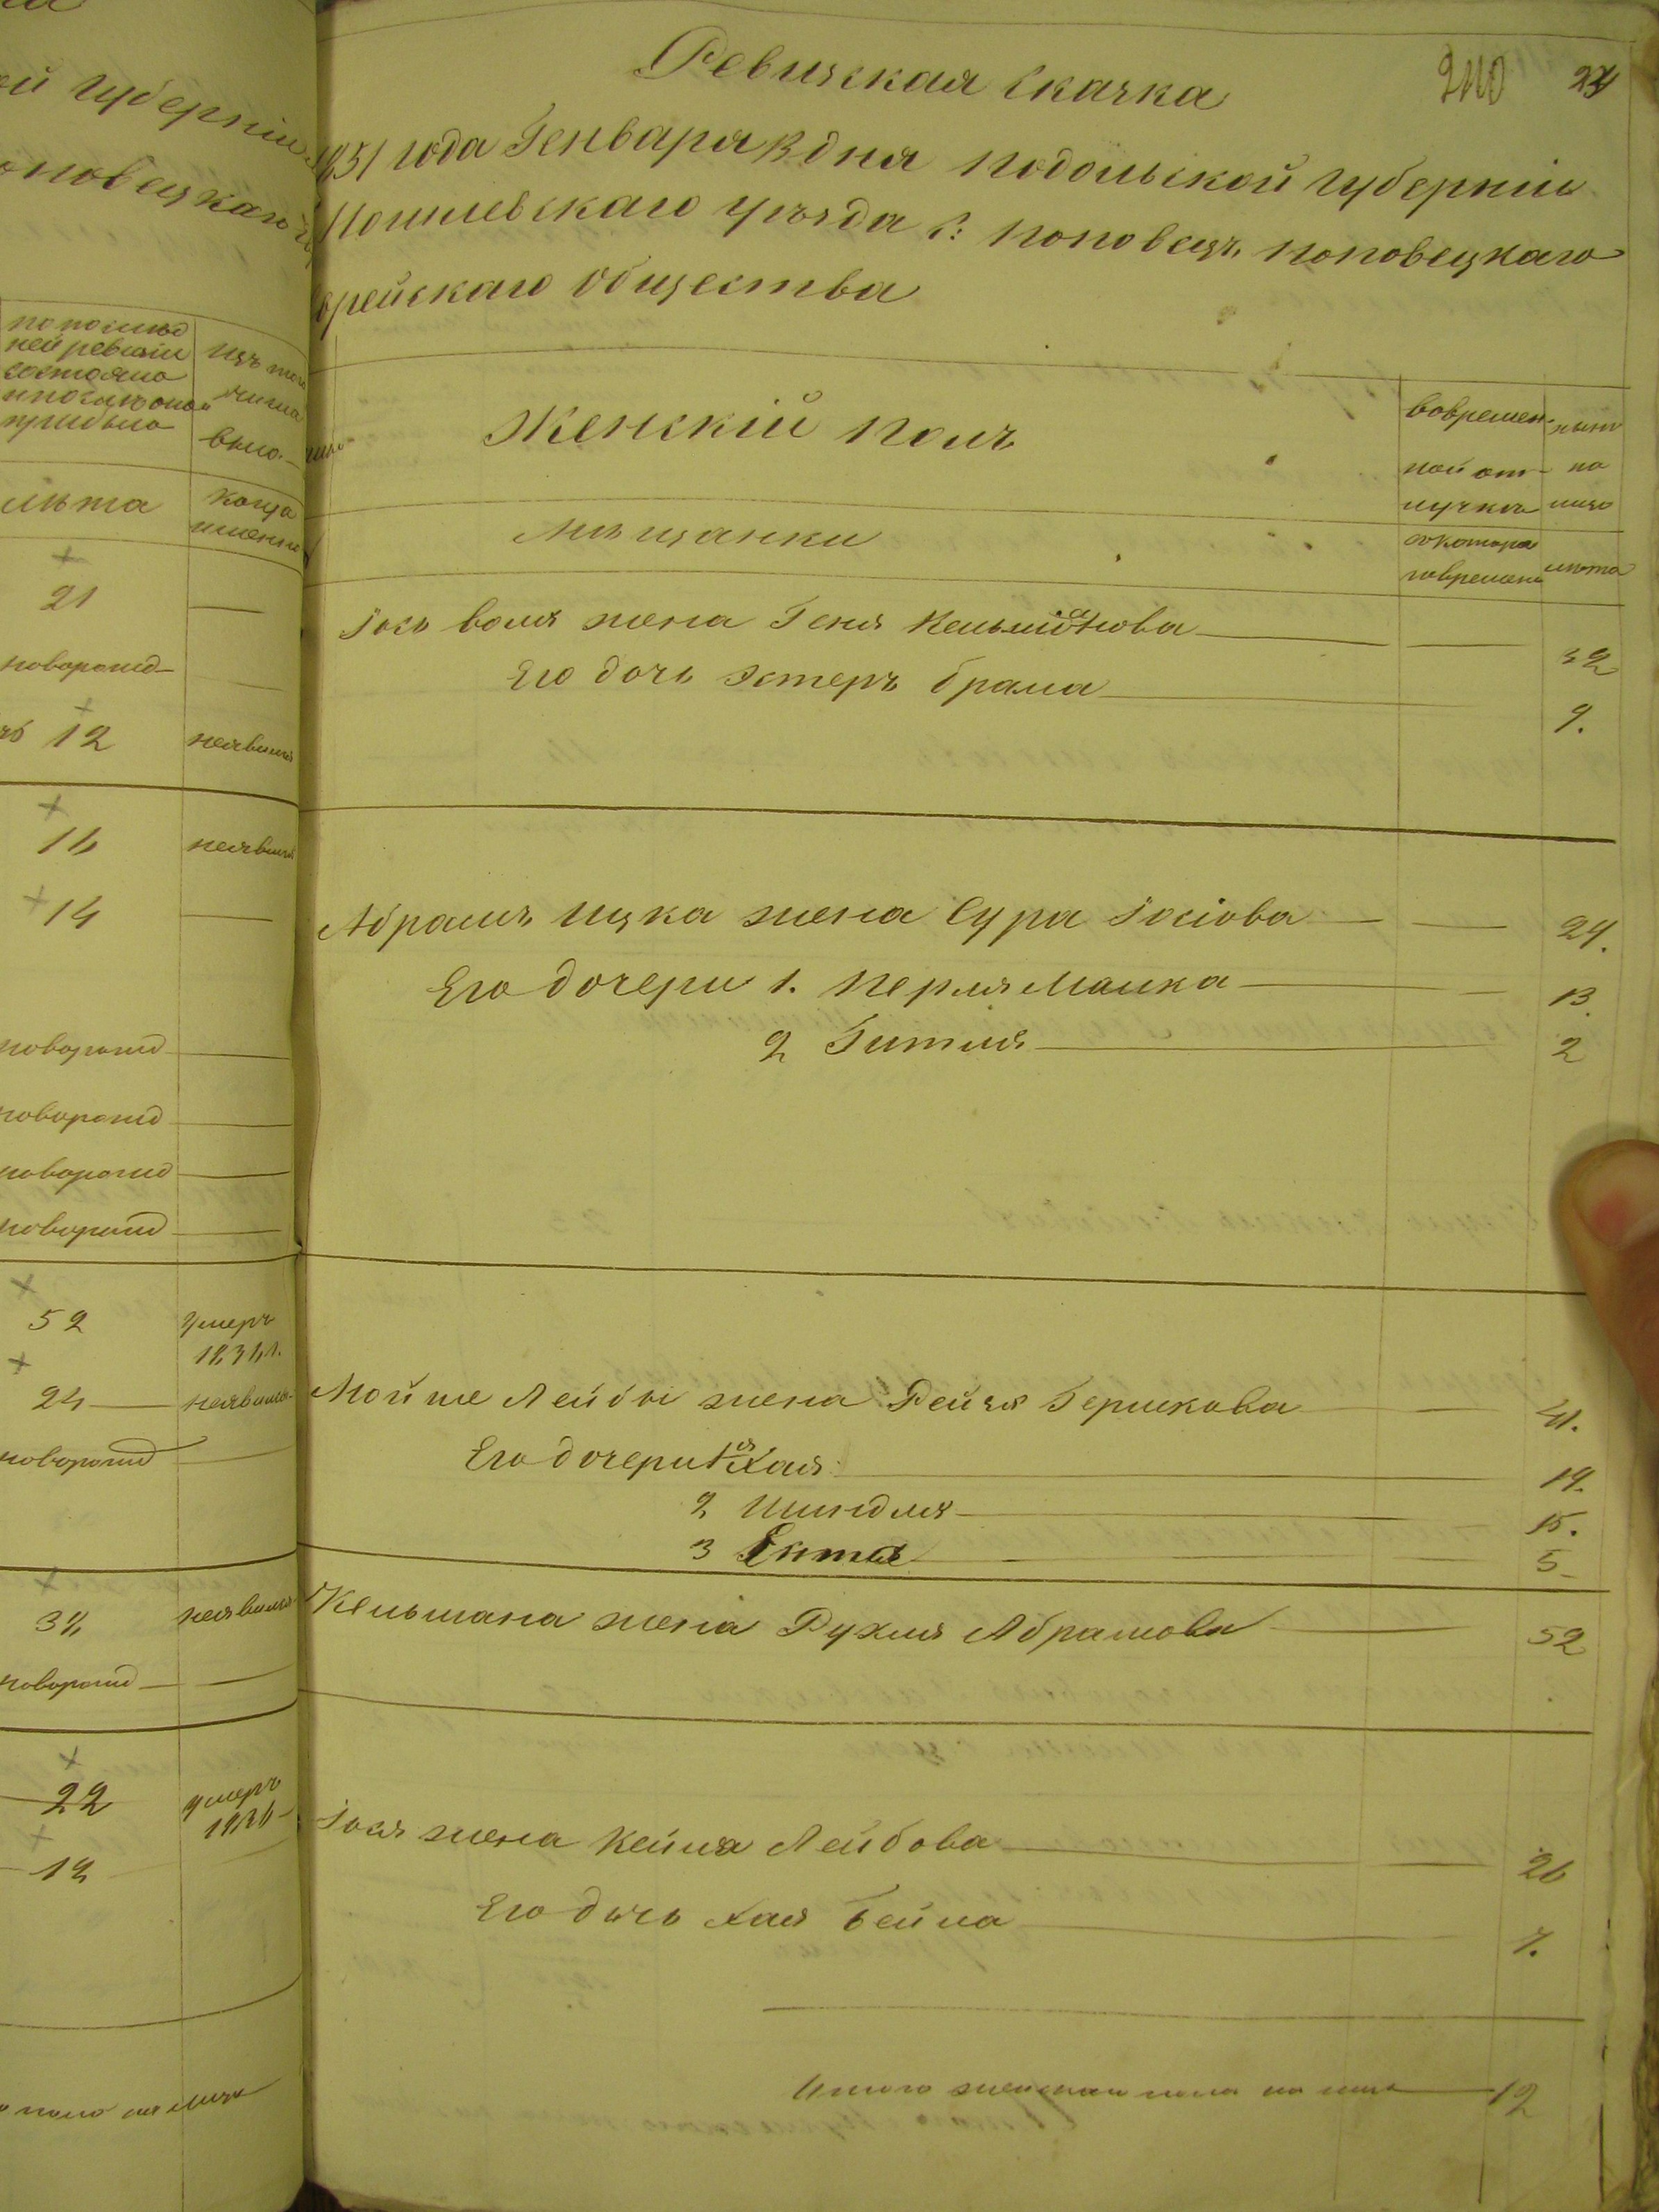 ей губерніи
поповецкаго
по послѣд
ней ревизіи
состояло
и послѣ оной
прибыло
изъ того
числа
выбы-
ло
лѣта
когда
именно
21
новорожд
12
неявился
16
неявился
14
новорожд
новорожд
новорожд
новорожд
52
умеръ
24
неявился
новорожд
34
неявился
новорожд
22
умеръ
12
Ревизская Скаска
240
24
1851 года Генваря 3 дня Подольской Губерніи
Могилевскаго уѣзда С: Поповецъ Поповецкаго
Еврейскаго Общества
Женскій Полъ
вовремен-
ной от-
лучкѣ
нынѣ
на
лицо
Мѣщанки
съ котора
го времени
лѣта
Іось Воля жена Геня Кельманова
32
Его дочь Эстеръ Брама
9.
Абрамъ Ицка жена Сура Іосіова
24.
Его дочери 1. Перля Малка
13.
2 Гитля
2
Мойше Лейбы жена Рейзя Гершкова
41.
Его дочери 1я Хая
19.
2 Шиндля
15.
3 Ента
5
Кельмана жена Рухля Абрамова
52
Іося жена Кейля Лейбова
26
Его дочь Хая Бейла
7.
Итого женскаго пола на лицо
12